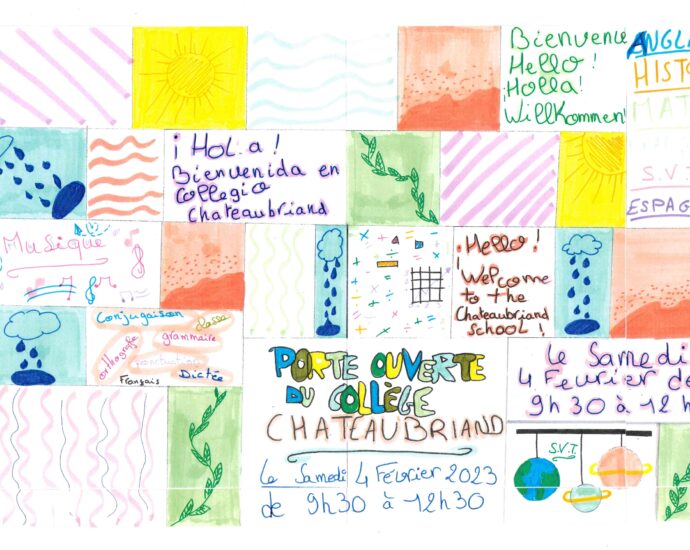 Bienvenue
Hello !
¡Holla!
Willkommen!
ANGLA
HISTO
MAT
S.V.
ESPAG
¡ Hola !
Bienvenida en
collegio
chateaubriand
Musique
¡Hello !
Welcome
to the
Chateaubriand
school !
Conjugaison
classe
orthografie
grammaire
ponctuation
Français
Dictée
PORTE OUVERTE
DU COLLÈGE
CHATEAUBRIAND
Le Samedi 4 Février 2023
de 9h30 à 12h30
Le Samedi
4 Février de
9h30 à 12h
S.V.T.